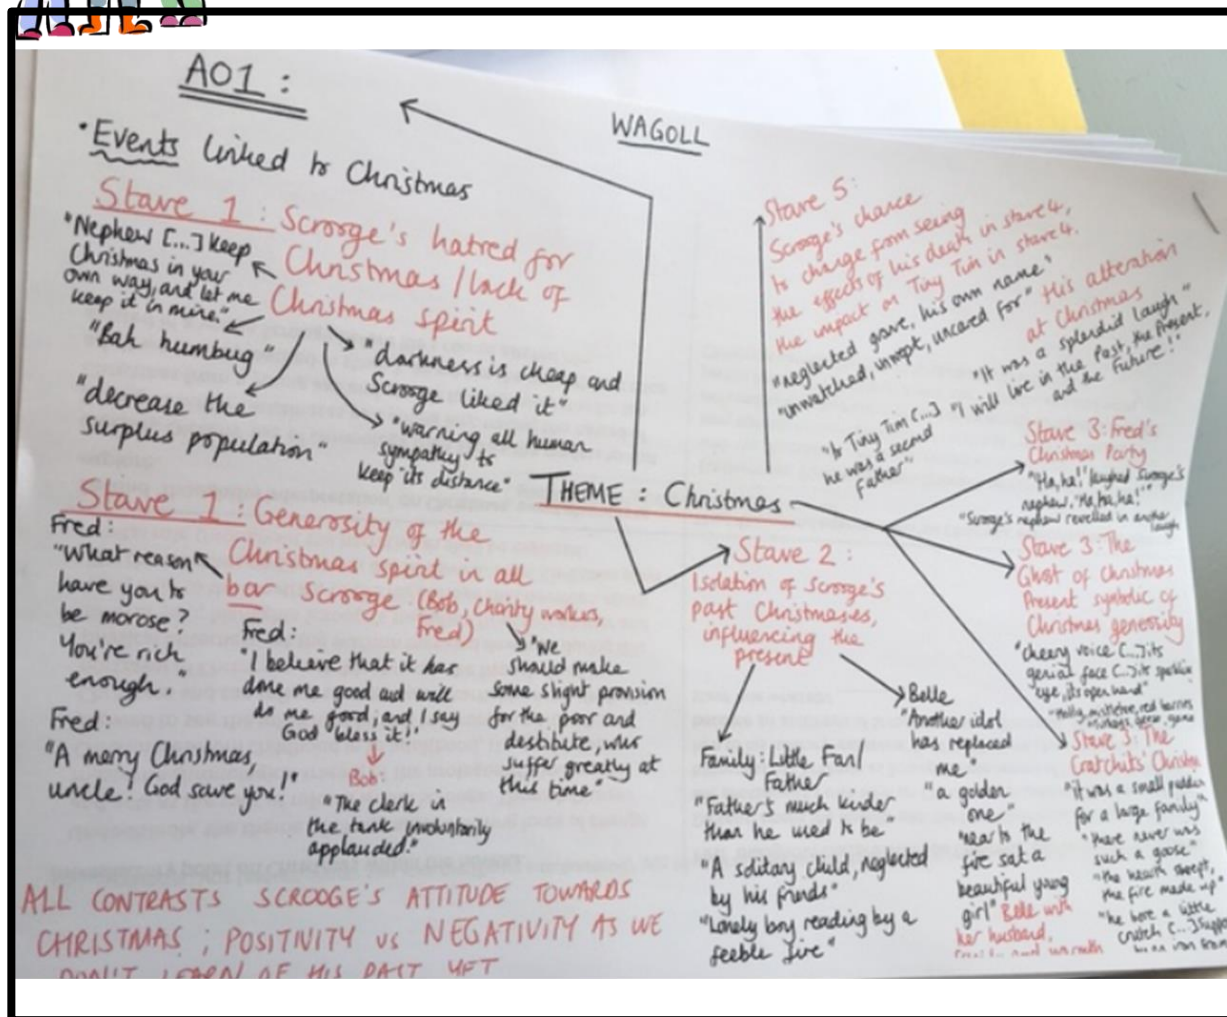 AO1 :
WAGOLL
• Events linked to Christmas
Stave 1 : Scrooge's hatred for
Christmas / lack of
Christmas spirit
"Nephew [...] keep
Christmas in your
own way, and let me
keep it in mine."
"Bah humbug"
"decrease the
surplus population"
"darkness is cheap and
Scrooge liked it"
"warning all human
sympathy to
keep its distance"
THEME : Christmas
Stave 1 : Generosity of the
Christmas spirit in all
bar Scrooge (Bob, Charity workers,
Fred)
Fred:
"What reason
have you to
be morose?
You're rich
enough."
Fred:
"A merry Christmas,
uncle! God save you!"
Fred:
"I believe that it has
done me good and will
do me good; and I say
God bless it!"
Bob:
"The clerk in
the tank involuntarily
applauded."
"We
should make
some slight provision
for the poor and
destitute, who
suffer greatly at
this time"
ALL CONTRASTS SCROOGE'S ATTITUDE TOWARDS
CHRISTMAS ; POSITIVITY vs NEGATIVITY AS WE
DON'T LEARN OF HIS PAST YET
Stave 5:
Scrooge's chance
to change from seeing
the effects of his death in stave 4,
the impact on Tiny Tim in stave 4.
"neglected grave, his own name"
"unwatched, unwept, uncared for"
His alteration
at Christmas
"It was a splendid laugh"
"I will live in the Past, the Present,
and the Future!"
"to Tiny Tim [...]
he was a second
Father"
Stave 2 :
Isolation of Scrooge's
past Christmases,
influencing the
present
Family: Little Fan/
Father
"Father's much kinder
than he used to be"
"A solitary child, neglected
by his friends"
"Lonely boy reading by a
feeble fire"
Belle
"Another idol
has replaced
me"
"a golden
one"
"near to the
fire sat a
beautiful young
girl" Belle with
her husband,
family and warmth
Stave 3: Fred's
Christmas Party
"Ha, ha!" laughed Scrooge's
nephew. "Ha, ha, ha!"
"Scrooge's nephew revelled in another
laugh
Stave 3: The
Ghost of Christmas
Present symbolic of
Christmas generosity
"cheery voice [...] its
genial face [...] its sparkling
eye, its open hand"
"Holly, mistletoe, red berries
Stave 3: The
Cratchits' Christmas
"it was a small pudding
for a large family"
"there never was
such a goose"
"the hearth swept,
the fire made up"
"he bore a little
crutch [...]